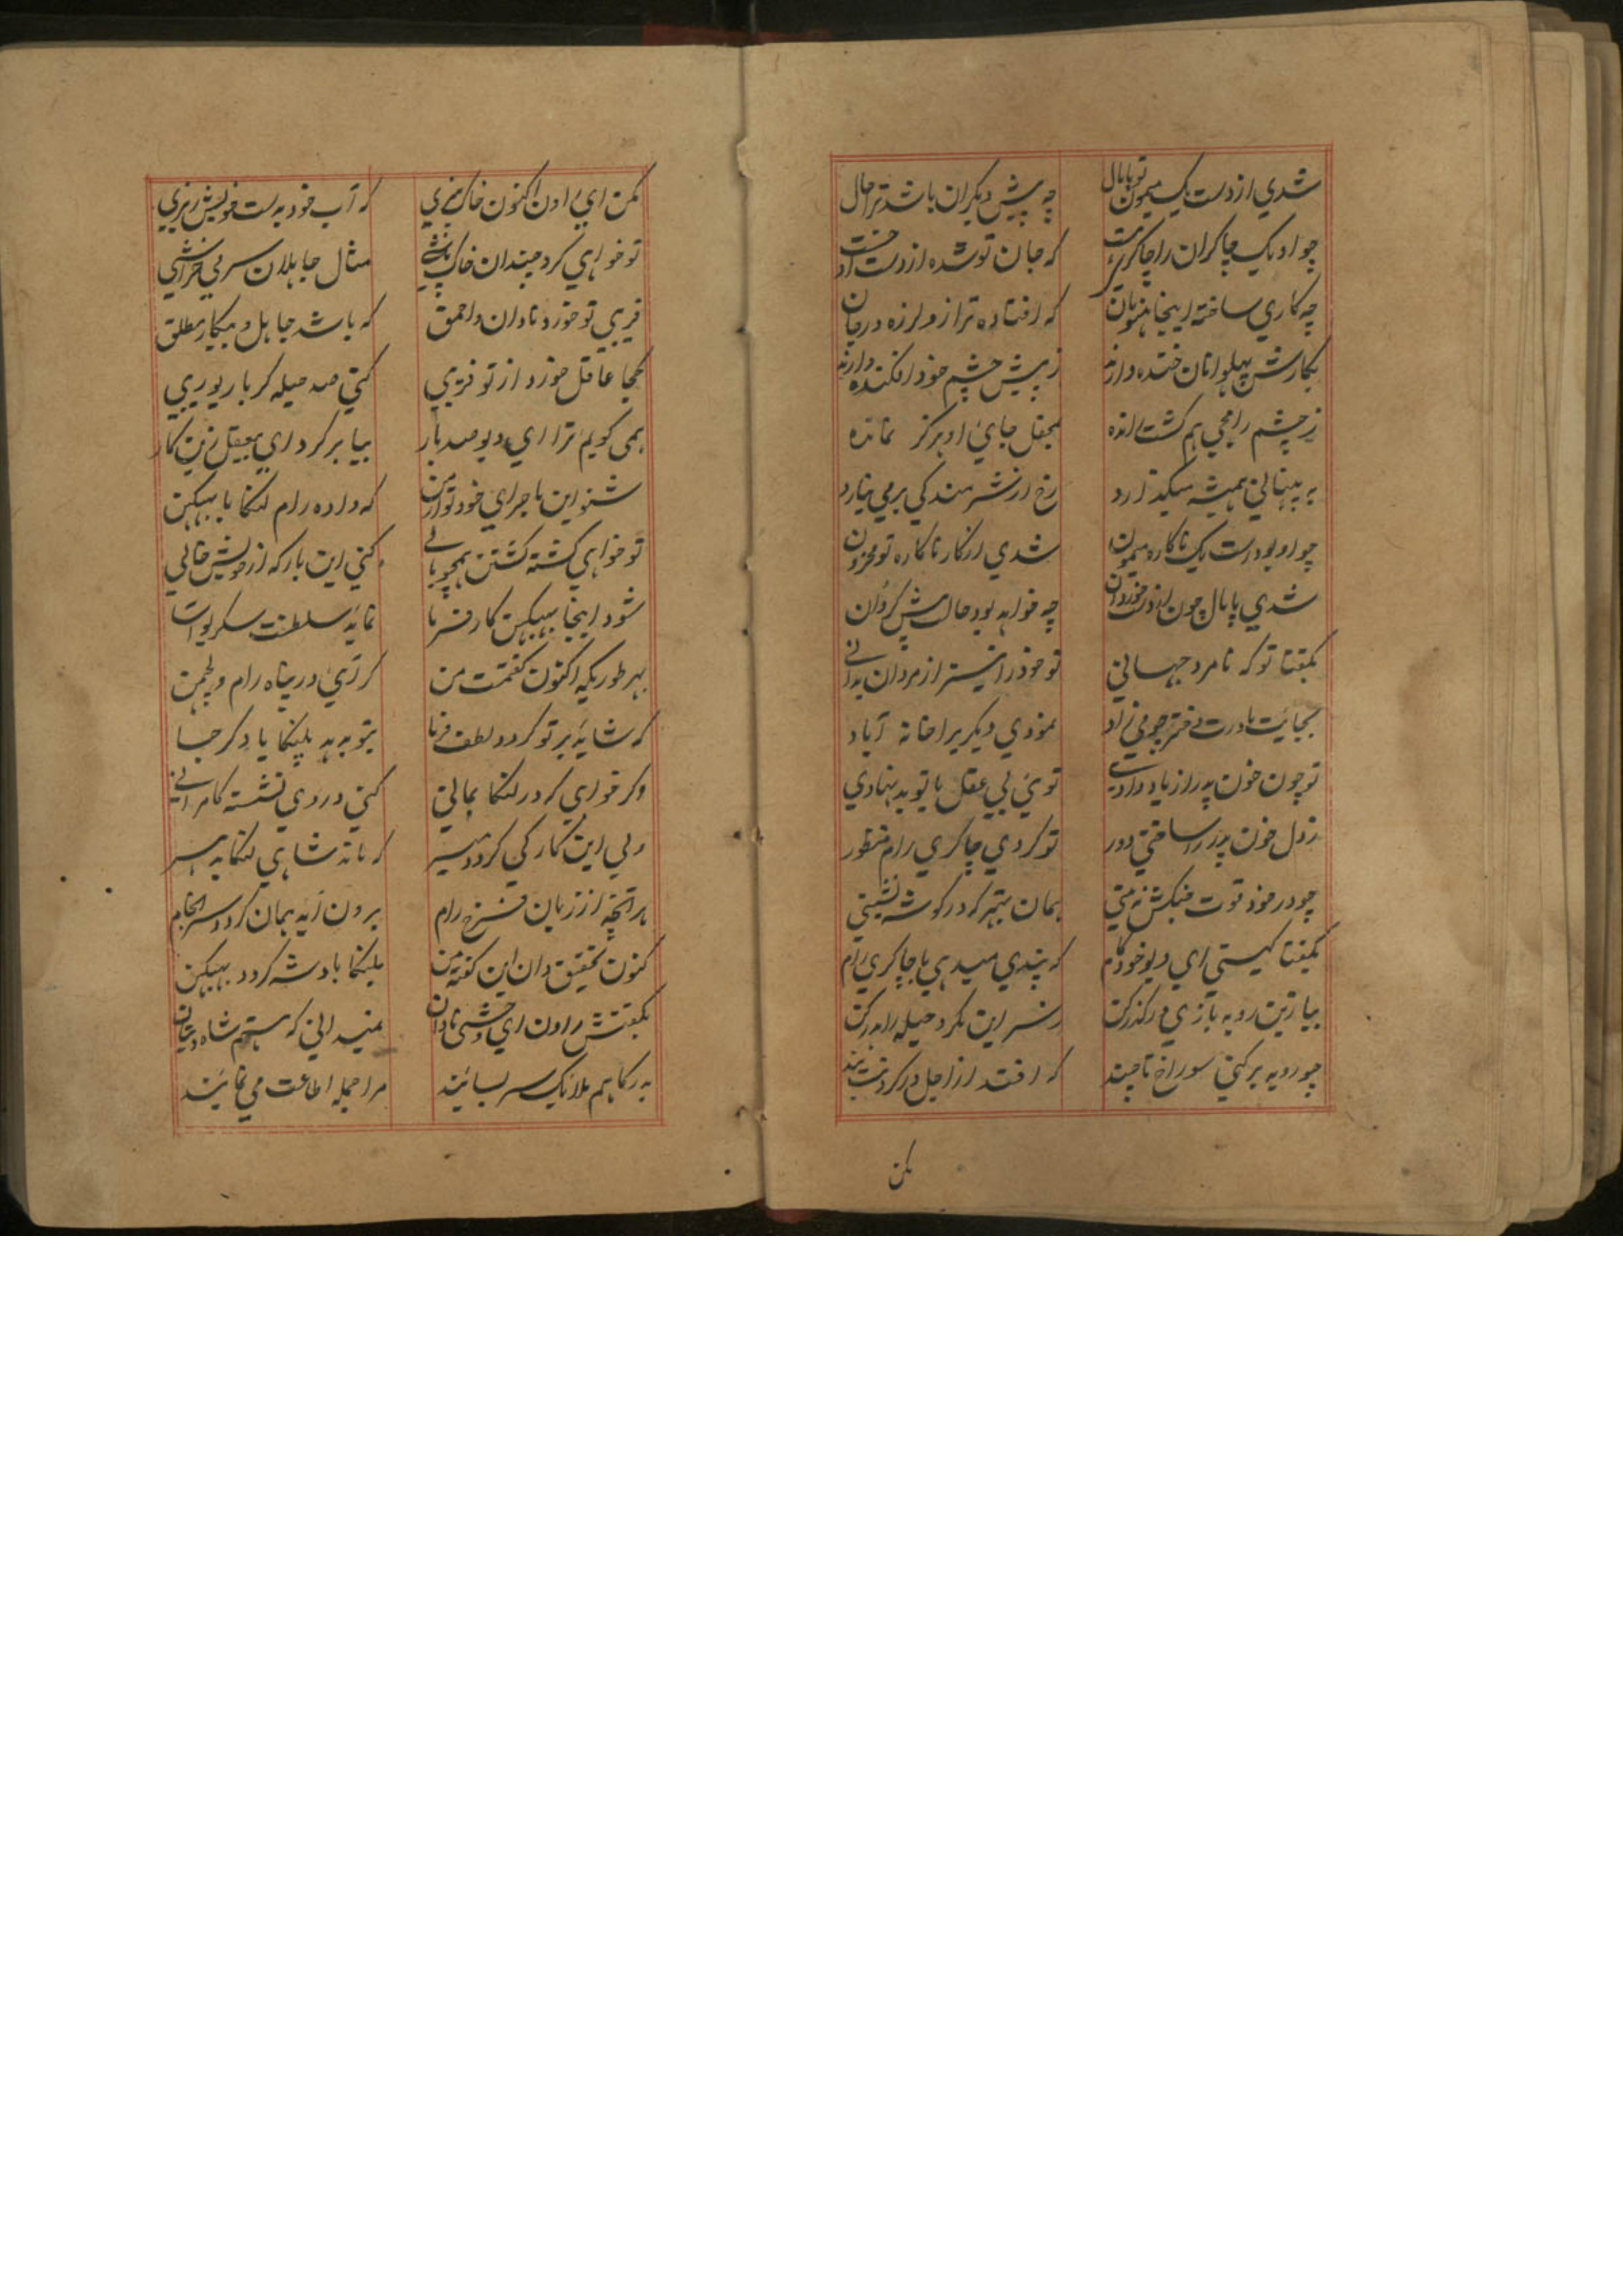 شدي از دست یک میمون تو پامال چه پیش دیکران باشد ترا حال
چو او یک چاکران را چاکر است که جان تو شده از دست او
چه کاري ساخته اینجا هنومان که افتاده ترا زو لرزه در جان
بکارش پهلوانان خنده دارند ز پیش چشم خود افکنده دارند
ز چشم رامچي هم کشت رانده بمحفل جاي او هرکز نمانده
به پنهاني همیشه میکذارد رخ از شرمندکي بر مي نیارد
چو او بود است یک ناکاره میمون شدي از کار ناکاره تو محزون
شدي پامال چون از خوردان چه خواهد بود حالت پیش کردان
بکفتا تو که نامرد جهاني تو خود را نیز از مردان بداني
بجایت مادرت دختر چو مي زاد نمودي دیکریرا خانه آباد
تو چون خون پدر از یاد دادي توئي بي عقل با تو بد نهادي
ز دل خون پدر را ساختي دور تو کردي چاکري رام منظور
چو در خود قوت جنکش نه بیني همان بهتر که در کوشه نشیني
بکفتا کیستي اي دیو خودکام که پندي میدهي با چاکري رام
بیا زین روبه بازي در کذر کن ز سر این مکر و حیله را بدر کن
چو روبه برکني سوراخ تا چند که افتد از اجل در کردنت بند
مکن
مکن اي راون اکنون خاک بیزي که آب خود بدست خویش ریزي
تو خواهي کرد چندان خاک پاشي مثال جاهلان سر بي خراشي
فریبي تو خورد نادان و احمق که باشد جاهل و بیکار مطلق
کجا عاقل خورد از تو فریبي کني صد حیله کر با ریو ریبي
همي کویم ترا اي دیو صد بار بیا بر کرد اي بیعقل زین کار
شنو این ماجراي خود تو از من که داده رام لنکا با ببیکن
تو خواهي کشته کشتن همچو بالي کني این بارکه از خویش خالي
شود اینجا ببیکن کار فرما نماید سلطنت سکریو آنجا
بهر طوریکه اکنون کفتمت من کر آئي در پناه رام و لچمن
که شاید بر تو کردد لطف فرما بتو بدهد بلنکا یاد کر جا
وکر خواهي که در لنکا بماني کني در وي نشسته کامراني
ولي این کار کي کردد میسر که ماند شاهي لنکا به
هر آنچه از زبان فرخ رام برون آید همان کردد سرانجام
کنون تحقیق دان این کفته من بلنکا بادشه کردد ببیکن
بکفتش راون اي وحشي نادان نمیداني که هستم شاه دیوان
بدرکاهم ملائک سر بسایند مرا جمله اطاعت مي نمایند